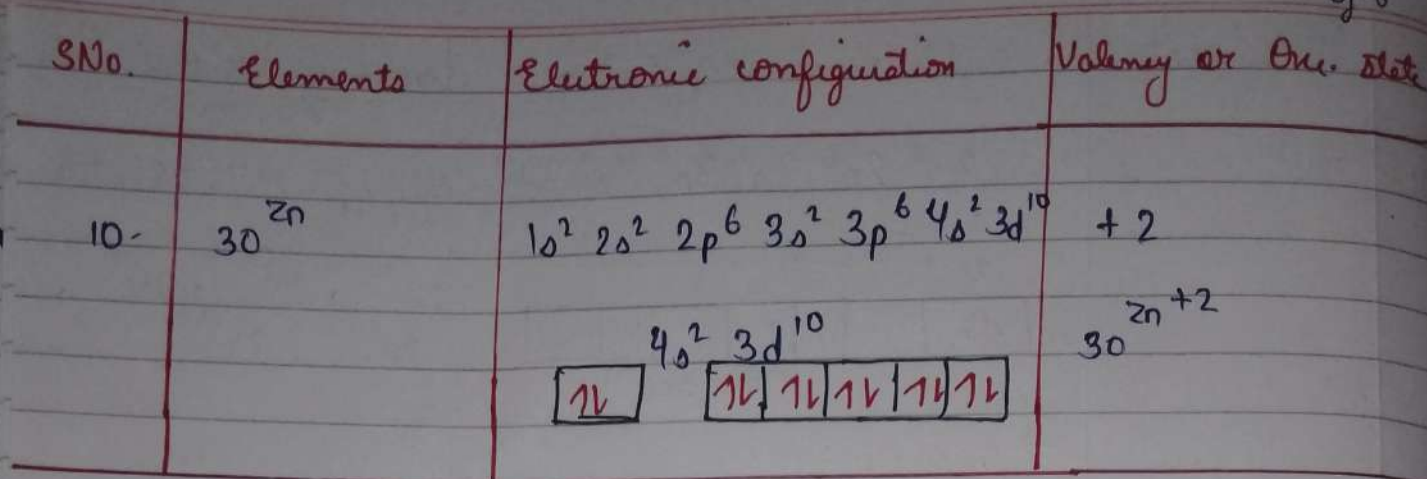 SNo. Elements Electronic configuration Valency or Oxi. state
10- 30^Zn 1s² 2s² 2p⁶ 3s² 3p⁶ 4s² 3d¹⁰ +2
4s² 3d¹⁰ 30^Zn⁺²
⥮ ⥮ ⥮ ⥮ ⥮ ⥮